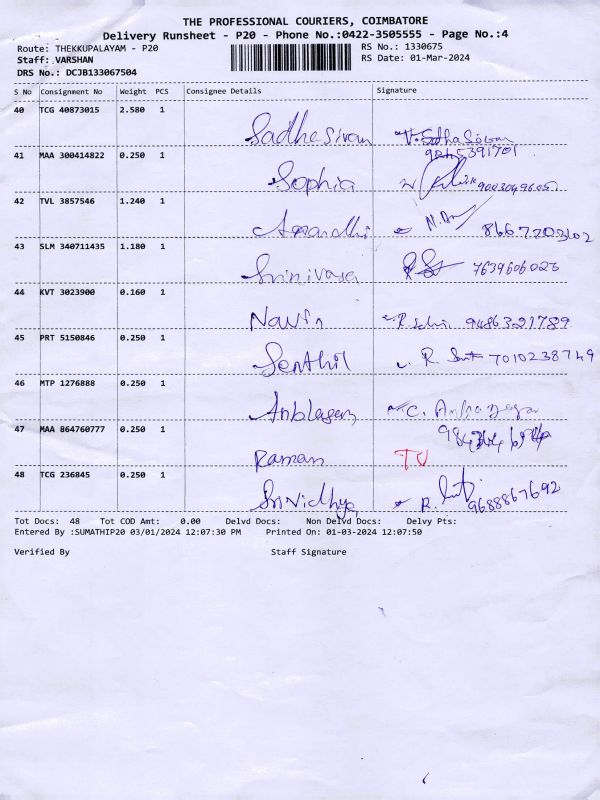 THE PROFESSIONAL COURIERS, COIMBATORE
Delivery Runsheet - P20 - Phone No.:0422-3505555 - Page No.:4
Route: THEKKUPALAYAM - P20 RS No.: 1330675
Staff: VARSHAN RS Date: 01-Mar-2024
DRS No.: DCJB133067504
S No Consignment No Weight PCS Consignee Details Signature
40 TCG 40873015 2.580 1 Sadhasivam V. Sadha Sivam
9015391701
41 MAA 300414822 0.250 1 Sophia
42 TVL 3857546 1.240 1 8667203102
43 SLM 340711435 1.180 1 Srinivasa 7639606026
44 KVT 3023900 0.160 1 Navin 9486321789
45 PRT 5150846 0.250 1 Senthil R. 7010238749
46 MTP 1276888 0.250 1 Anblagan C.
47 MAA 864760777 0.250 1 Raman TU
48 TCG 236845 0.250 1 SriVidhya R. 9688867692
Tot Docs: 48 Tot COD Amt: 0.00 Delvd Docs: Non Delvd Docs: Delvy Pts:
Entered By :SUMATHIP20 03/01/2024 12:07:30 PM Printed On: 01-03-2024 12:07:50
Verified By Staff Signature